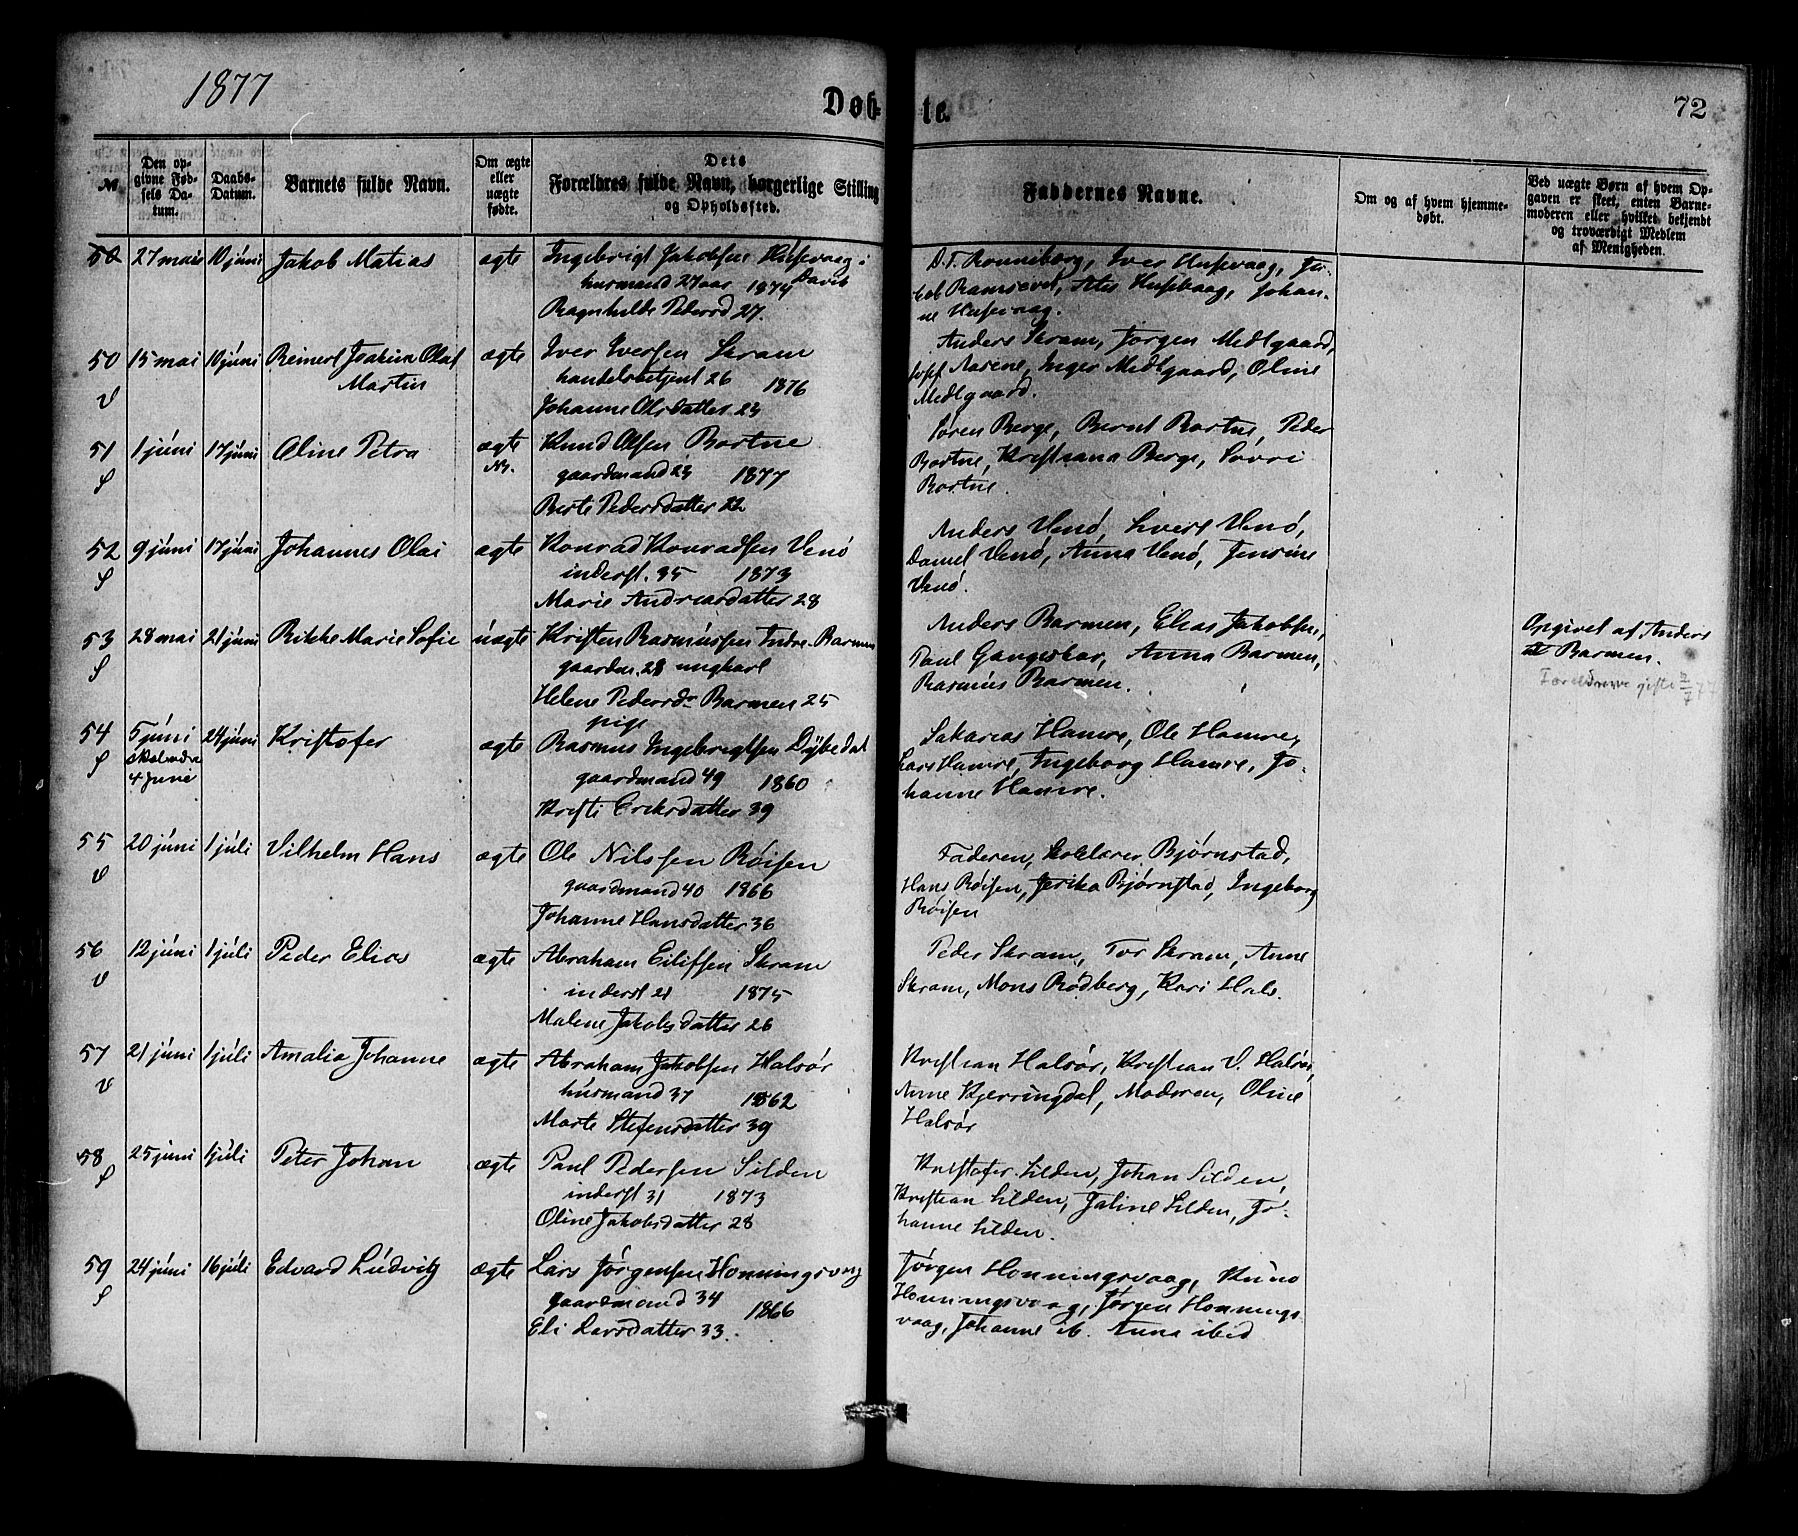 1877
Døb-
te.
72
№
Den opgivne Fødsels Datum.
Daabs-Datum.
Barnets fulde Navn.
Om ægte eller uægte fødte.
Dets Forældres fulde Navn, borgerlige Stilling og Opholdssted.
Faddernes Navne.
Om og af hvem hjemmedøbt.
Ved uægte Børn af hvem Opgaven er skeet, enten Barnemoderen eller hvilket bekjendt og troværdigt Medlem af Menigheden.
50 27 mai 10 juni Jakob Matias ægte Ingebrigt Jakobsen Husevaag i
husmand 27 aar 1874 Davik
Ragnhilde Pedersd 27.
D.T. Ronneborg, Iver Husevaag, Ja-
kob Ramsevet, Ates Husevaag, Johan-
ne Husevaag.
50 15 mai 10 juni Reinert Joakim Olai ægte Iver Iversen Skram
v Martin handelsbetjent 26 1876
Johanne Olsdatter 23
Anders Skram, Jørgen Medlgaard,
Aasene, Inger Medlgaard, Oline
Medlgaard.
51 1 juni 17 juni Oline Petra ægte Knud Olsen Bortne
S No. gaardmand 23 1877
Berte Pedersdatter 22
Søren Berge, Bernt Bortne, Peder
Bortne, Kristiana Berge, Sovri
Bortne.
52 9 juni 17 juni Johannes Olai ægte Konrad Konradsen Venø
S inderst. 35 1873
Marie Andreasdatter 28
Anders Venø, Sivert Venø,
Daniel Venø, Anna Venø, Jensine
Venø.
53 28 mai 21 juni Rikke Marie Sofie uægte Kristen Rasmussen Indre Barmen
S gaardm. 28 ungkarl
Helene Pedersdr Barmen 25
pige
Anders Barmen, Elias Jakobsen,
Paul Gangeskar, Anna Barmen,
Rasmus Barmen.
Opgivet af Anders
Barmen.
Forældrene gifte 77
54 5 juni 24 juni Kristofer ægte Rasmus Ingebrigtsen Dybedal
S skal være gaardmand 49 1860
4 Junie
Kristi Eriksdatter 39
Sakarias Hamre, Ole Hamre,
Lars Hamre, Ingeborg Hamre, Jo-
hanne Hamre.
55 20 juni 1 juli Vilhelm Hans ægte Ole Nilssen Røisen
v gaardmand 40 1866
Johanne Hansdatter 36
Faderen, Kolelærer Bjørnstad,
Hans Røisen, Jerika Bjørnstad, Ingeborg
Røisen
56 12 juni 1 juli Peder Elias ægte Abraham Eilifsen Skram
v inderst 21 1875
Malene Jakobsdatter 26
Peder Skram, Tor Skram, Anne
Skram, Mons Rødberg, Kari Hals.
57 21 juni 1 juli Amalia Johanne ægte Abraham Jakobsen Halsør
v husmand 37 1862
Marte Stefensdatter 39
Kristian Halsør, Kristian V. Halsør,
Anne Kjerringdal, Moderen, Oline
Halsør
58 25 juni 1 juli Peter Johan ægte Paul Pedersen Silden
S inderst 31 1873
Oline Jakobsdatter 28
Kristofer Silden, Johan Silden,
Kristian Silden, Jaline Silden, Jo-
hanne Silden.
59 24 juni 16 juli Edvard Ludvig ægte Lars Jørgensen Honningsvaag
S gaardmand 34 1866
Eli Larsdatter 33.
Jørgen Honningsvaag, Knud
Honningsvaag, Jørgen Honnings-
vaag, Johanne ib. Anna ibid